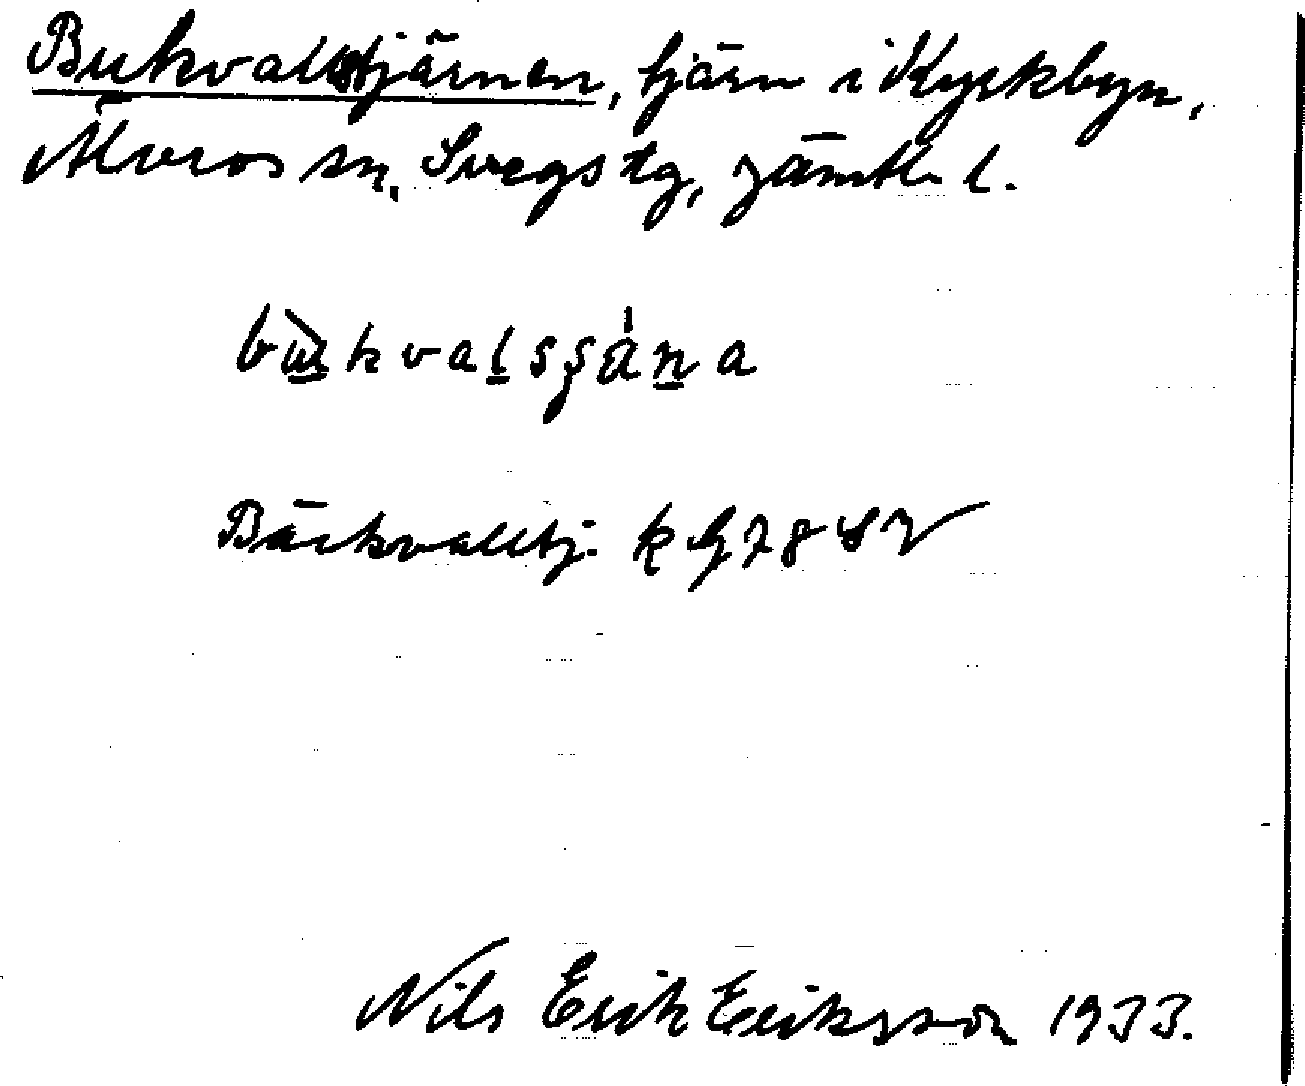 Bukvallstjärnen, tjärn i Kyrkbyn,
Älvros sn, Svegs tg, Jämtl. l.
Bäckvalltj. k
Nils Erik Eriksson 1933.